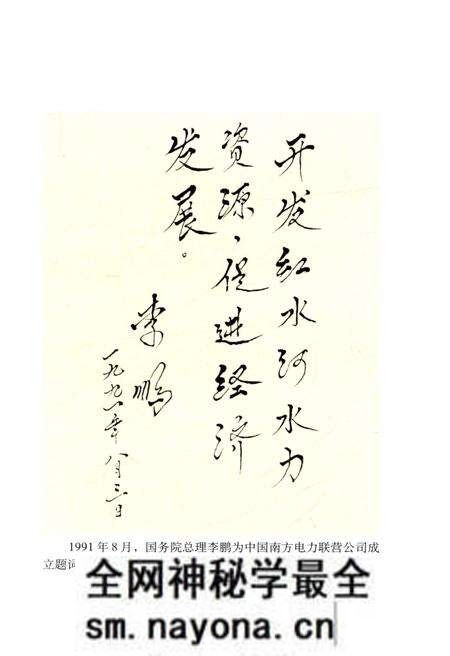 开发红水河水力
资源，促进经济
发展。
李鹏
一九九一年八月三日
1991年8月，国务院总理李鹏为中国南方电力联营公司成
立题词
全网神秘学最全
sm.nayona.cn